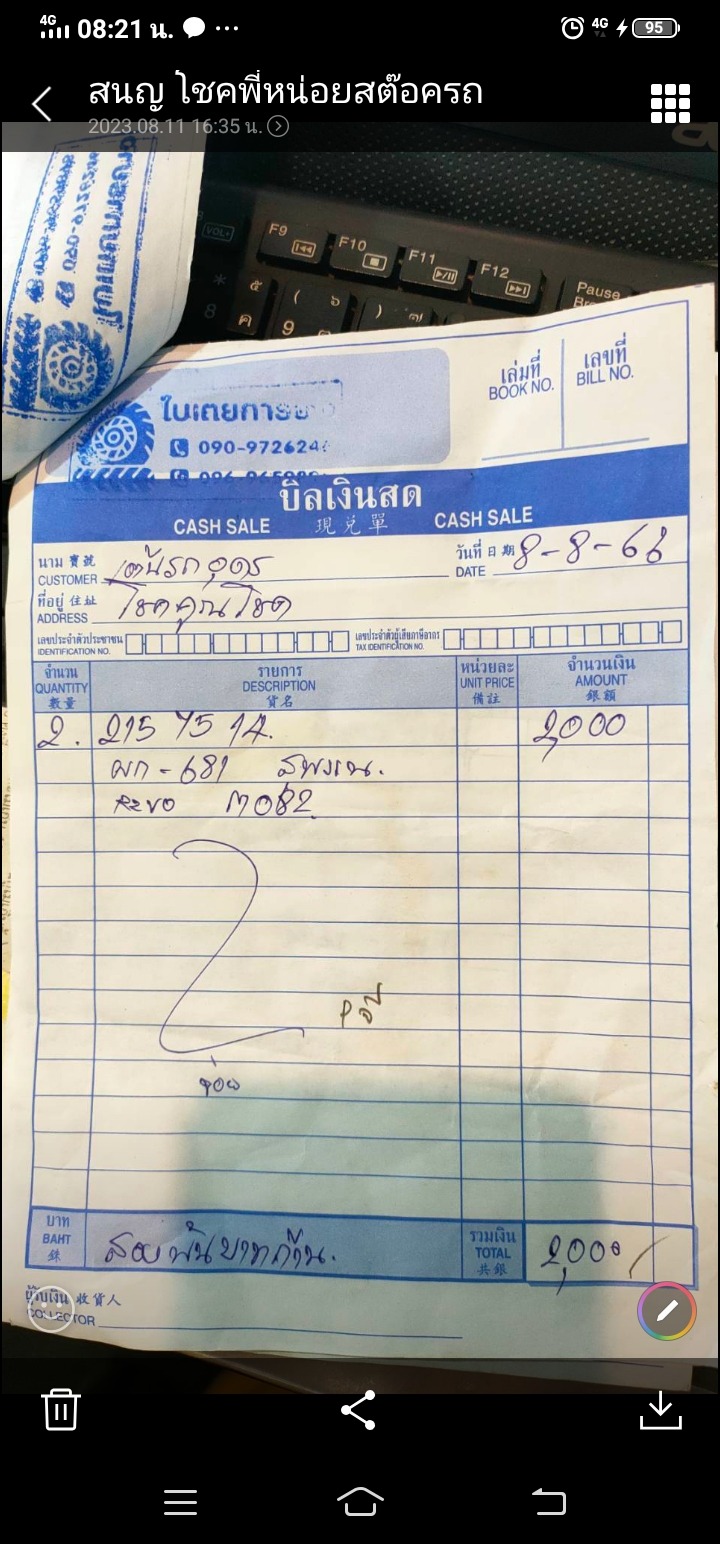 4G 08:21 น. ... 4G 95
สนญ โชคพี่หน่อยสต๊อครถ
2023.08.11 16:35 น.
VOL+ F9 F10 F11 F12 Pause
8 ค 9
ใบเตยการย
090-972624
เล่มที่ เลขที่
BOOK NO. BILL NO.
บิลเงินสด
CASH SALE 現兑單 CASH SALE
นาม 寶號 เต้นรถอุดร วันที่ 日期 8-8-66
CUSTOMER DATE
ที่อยู่ 住址 โชคคูณโชค
ADDRESS
เลขประจำตัวประชาชน เลขประจำตัวผู้เสียภาษีอากร
IDENTIFICATION NO. TAX IDENTIFICATION NO.
จำนวน รายการ หน่วยละ จำนวนเงิน
QUANTITY DESCRIPTION UNIT PRICE AMOUNT
數量 貨名 備註 銀額
2. 215 75 14. 2,000
ผก-681 สพรรณ.
Revo M082
บาท รวมเงิน
BAHT สองพันบาทถ้วน. TOTAL 2,000
銖 共銀
ผู้รับเงิน 收貨人
COLLECTOR